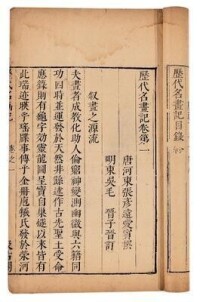 歷代名畫記目錄
歷代名畫記卷第一
唐河東張彥遠愛賓撰
明東吳毛 晉子晉訂
叙畫之源流
夫畫者成教化助人倫窮神變測幽微與六籍同
功四時並運發於天然非繇述作古先聖王受命
應籙則有龜字效靈龍圖呈寶自巢燧以來皆有
此瑞迹暎乎瑤牒事傳乎金册庖犧氏發於滎河